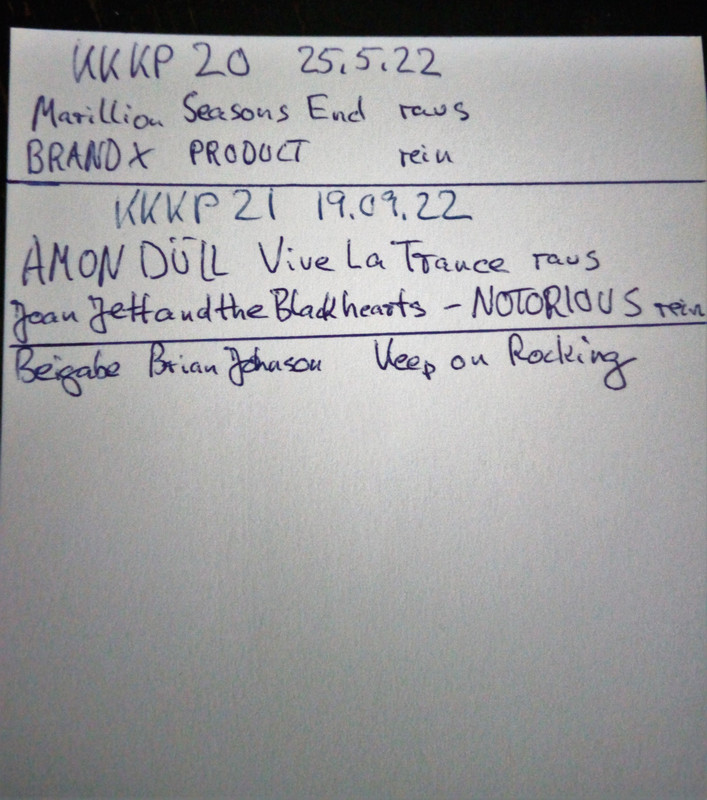 KKKP 20 25.5.22
Marillion Seasons End raus
BRAND X PRODUCT rein
KKKP 21 19.09.22
AMON DÜLL Vive La Trance raus
Joan Jett and the Blackhearts - NOTORIOUS rein
Beigabe Brian Johnson Keep on Rocking